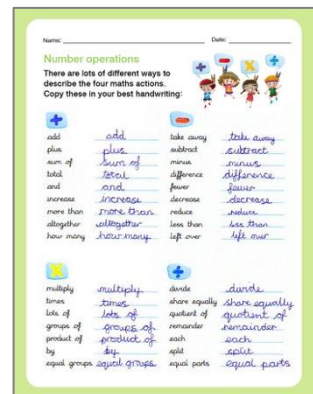 Name: Date:
Number operations
There are lots of different ways to
describe the four maths actions.
Copy these in your best handwriting:
+
add add
plus plus
sum of sum of
total total
and and
increase increase
more than more than
altogether altogether
how many how many
−
take away take away
subtract subtract
minus minus
difference difference
fewer fewer
decrease decrease
reduce reduce
less than less than
left over left over
x
multiply multiply
times times
lots of lots of
groups of groups of
product of product of
by by
equal groups equal groups
÷
divide divide
share equally share equally
quotient of quotient of
remainder remainder
each each
split split
equal parts equal parts